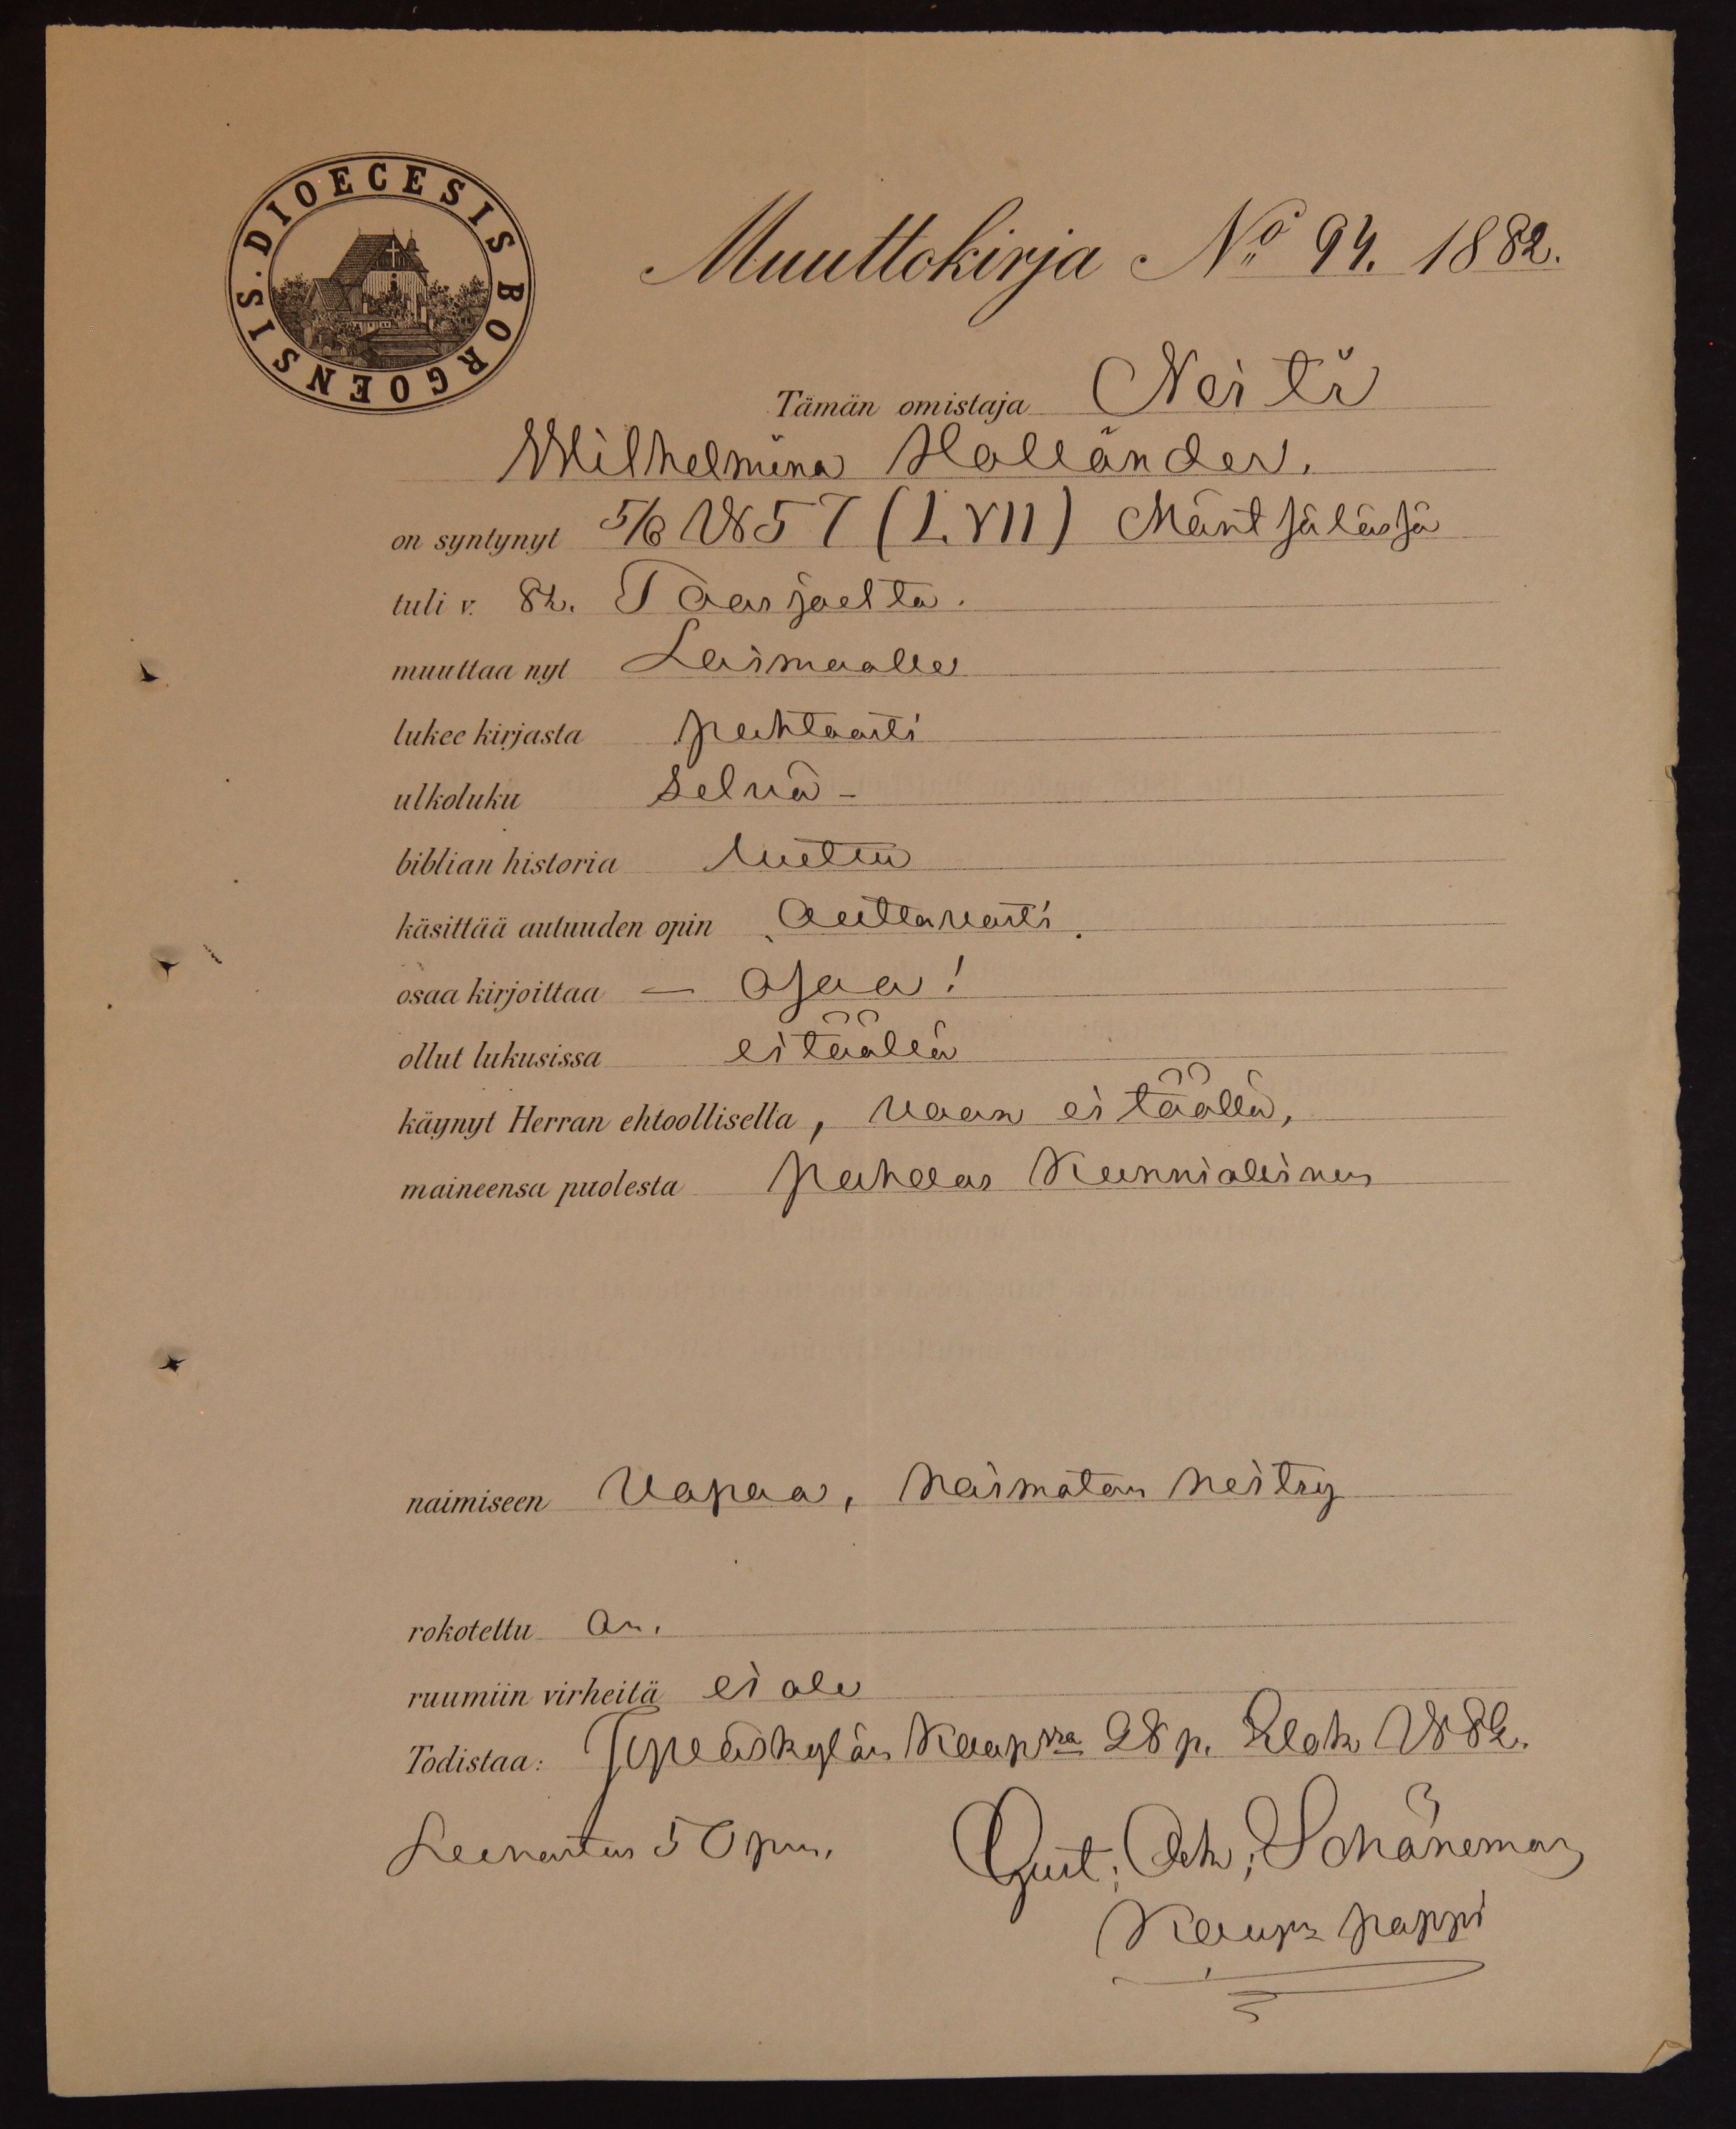 DIOECESIS BORGOENSIS.
Muuttokirja No 94. 1882.
Tämän omistaja Neiti
Wilhelmina Holländer.
on syntynyt 5/6 1857 (LVII) Mäntsälässä
tuli v. 82. Taasjaelta.
muuttaa nyt Loimaalle
lukee kirjasta puhtaasti
ulkoluku selvä -
biblian historia luettu
käsittää autuuden opin auttavasti.
osaa kirjoittaa — osaa!
ollut lukusissa ei täällä
käynyt Herran ehtoollisella, vaan ei täällä,
maineensa puolesta puhdas kunniallinen
naimiseen vapaa, naimaton neitsy
rokotettu on.
ruumiin virheitä ei ole
Todistaa: Jepuaskylän Kaupssa 28 p. Elok 1882.
Lunastus 50 pn.
Gust. Ad. Schöneman
Kaup: pappi